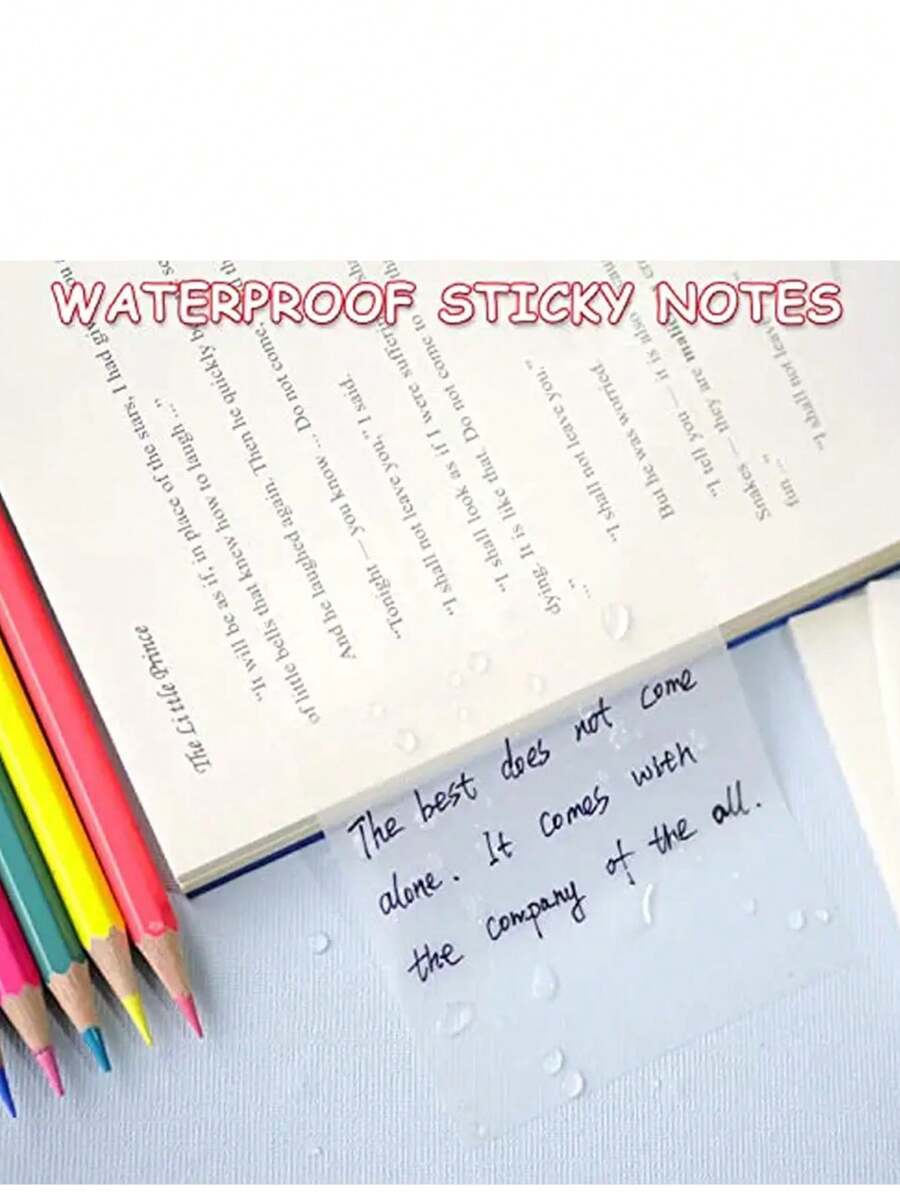 WATERPROOF STICKY NOTES
The Little Prince
"It will be as if, in place of the stars, I had given
of little bells that knew how to laugh ..."
And he laughed again. Then he quickly
"Tonight — you know ... Do not come,
"I shall not leave you," I said.
"I shall look as if I were suffering
dying. It is like that. Do not come to
..."
"I shall not leave you."
But he was worried.
"I tell you — it is also
Snakes — they are
fun ..."
"I shall not leave
The best does not come
alone. It comes with
the company of the all.